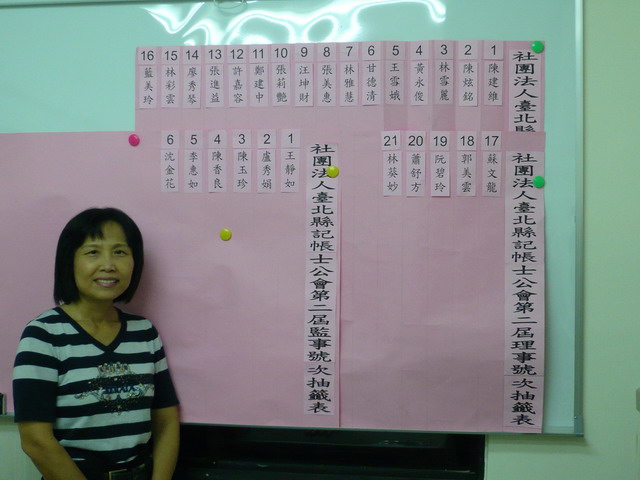 社團法人臺北縣
1 陳建維
2 陳炫銘
3 林雪麗
4 黃永俊
5 王雪娥
6 甘德清
7 林雅慧
8 張美惠
9 汪坤財
10 張莉艷
11 鄭建中
12 許嘉容
13 張進益
14 廖秀琴
15 林彩雲
16 藍美玲
社團法人臺北縣記帳士公會第二屆理事號次抽籤表
17 蘇文龍
18 郭美雲
19 阮碧玲
20 蕭舒方
21 林葵妙
社團法人臺北縣記帳士公會第二屆監事號次抽籤表
1 王靜如
2 盧秀娟
3 陳玉珍
4 陳香良
5 李惠如
6 沈金花